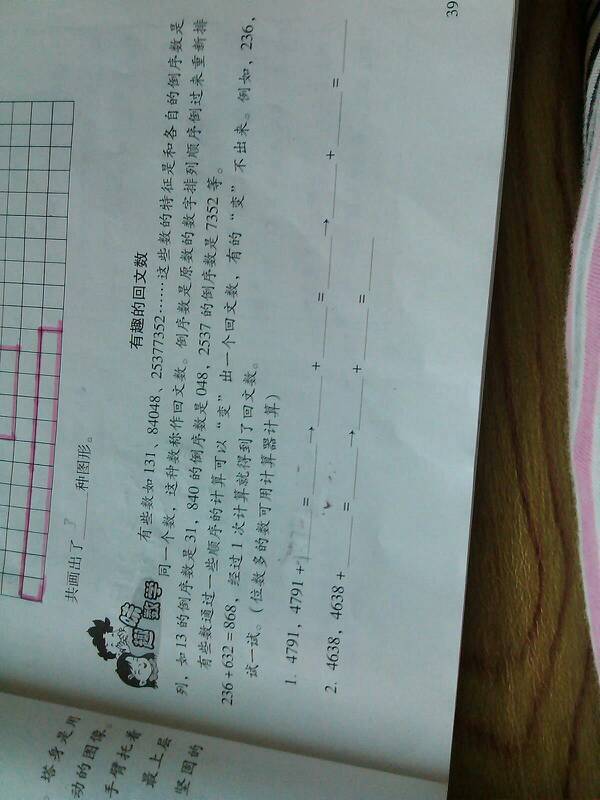 共画出了____种图形。
趣味数学
有趣的回文数
有些数如 131、84048、25377352……这些数的特征是和各自的倒序数是
同一个数，这种数称作回文数。倒序数是原数的数字排列顺序倒过来重新排
列，如 13 的倒序数是 31，840 的倒序数是 048，2537 的倒序数是 7352 等。
有些数通过一些顺序的计算可以“变”出一个回文数，有的“变”不出来。例如，236，
236+632=868，经过 1 次计算就得到了回文数。
试一试。（位数多的数可用计算器计算）
1. 4791，4791+____=____→____+____=____→____+____=____
2. 4638，4638+____=____→____+____=____
39
塔身是用
动的图像。
手臂托着
最上层
竖圆的